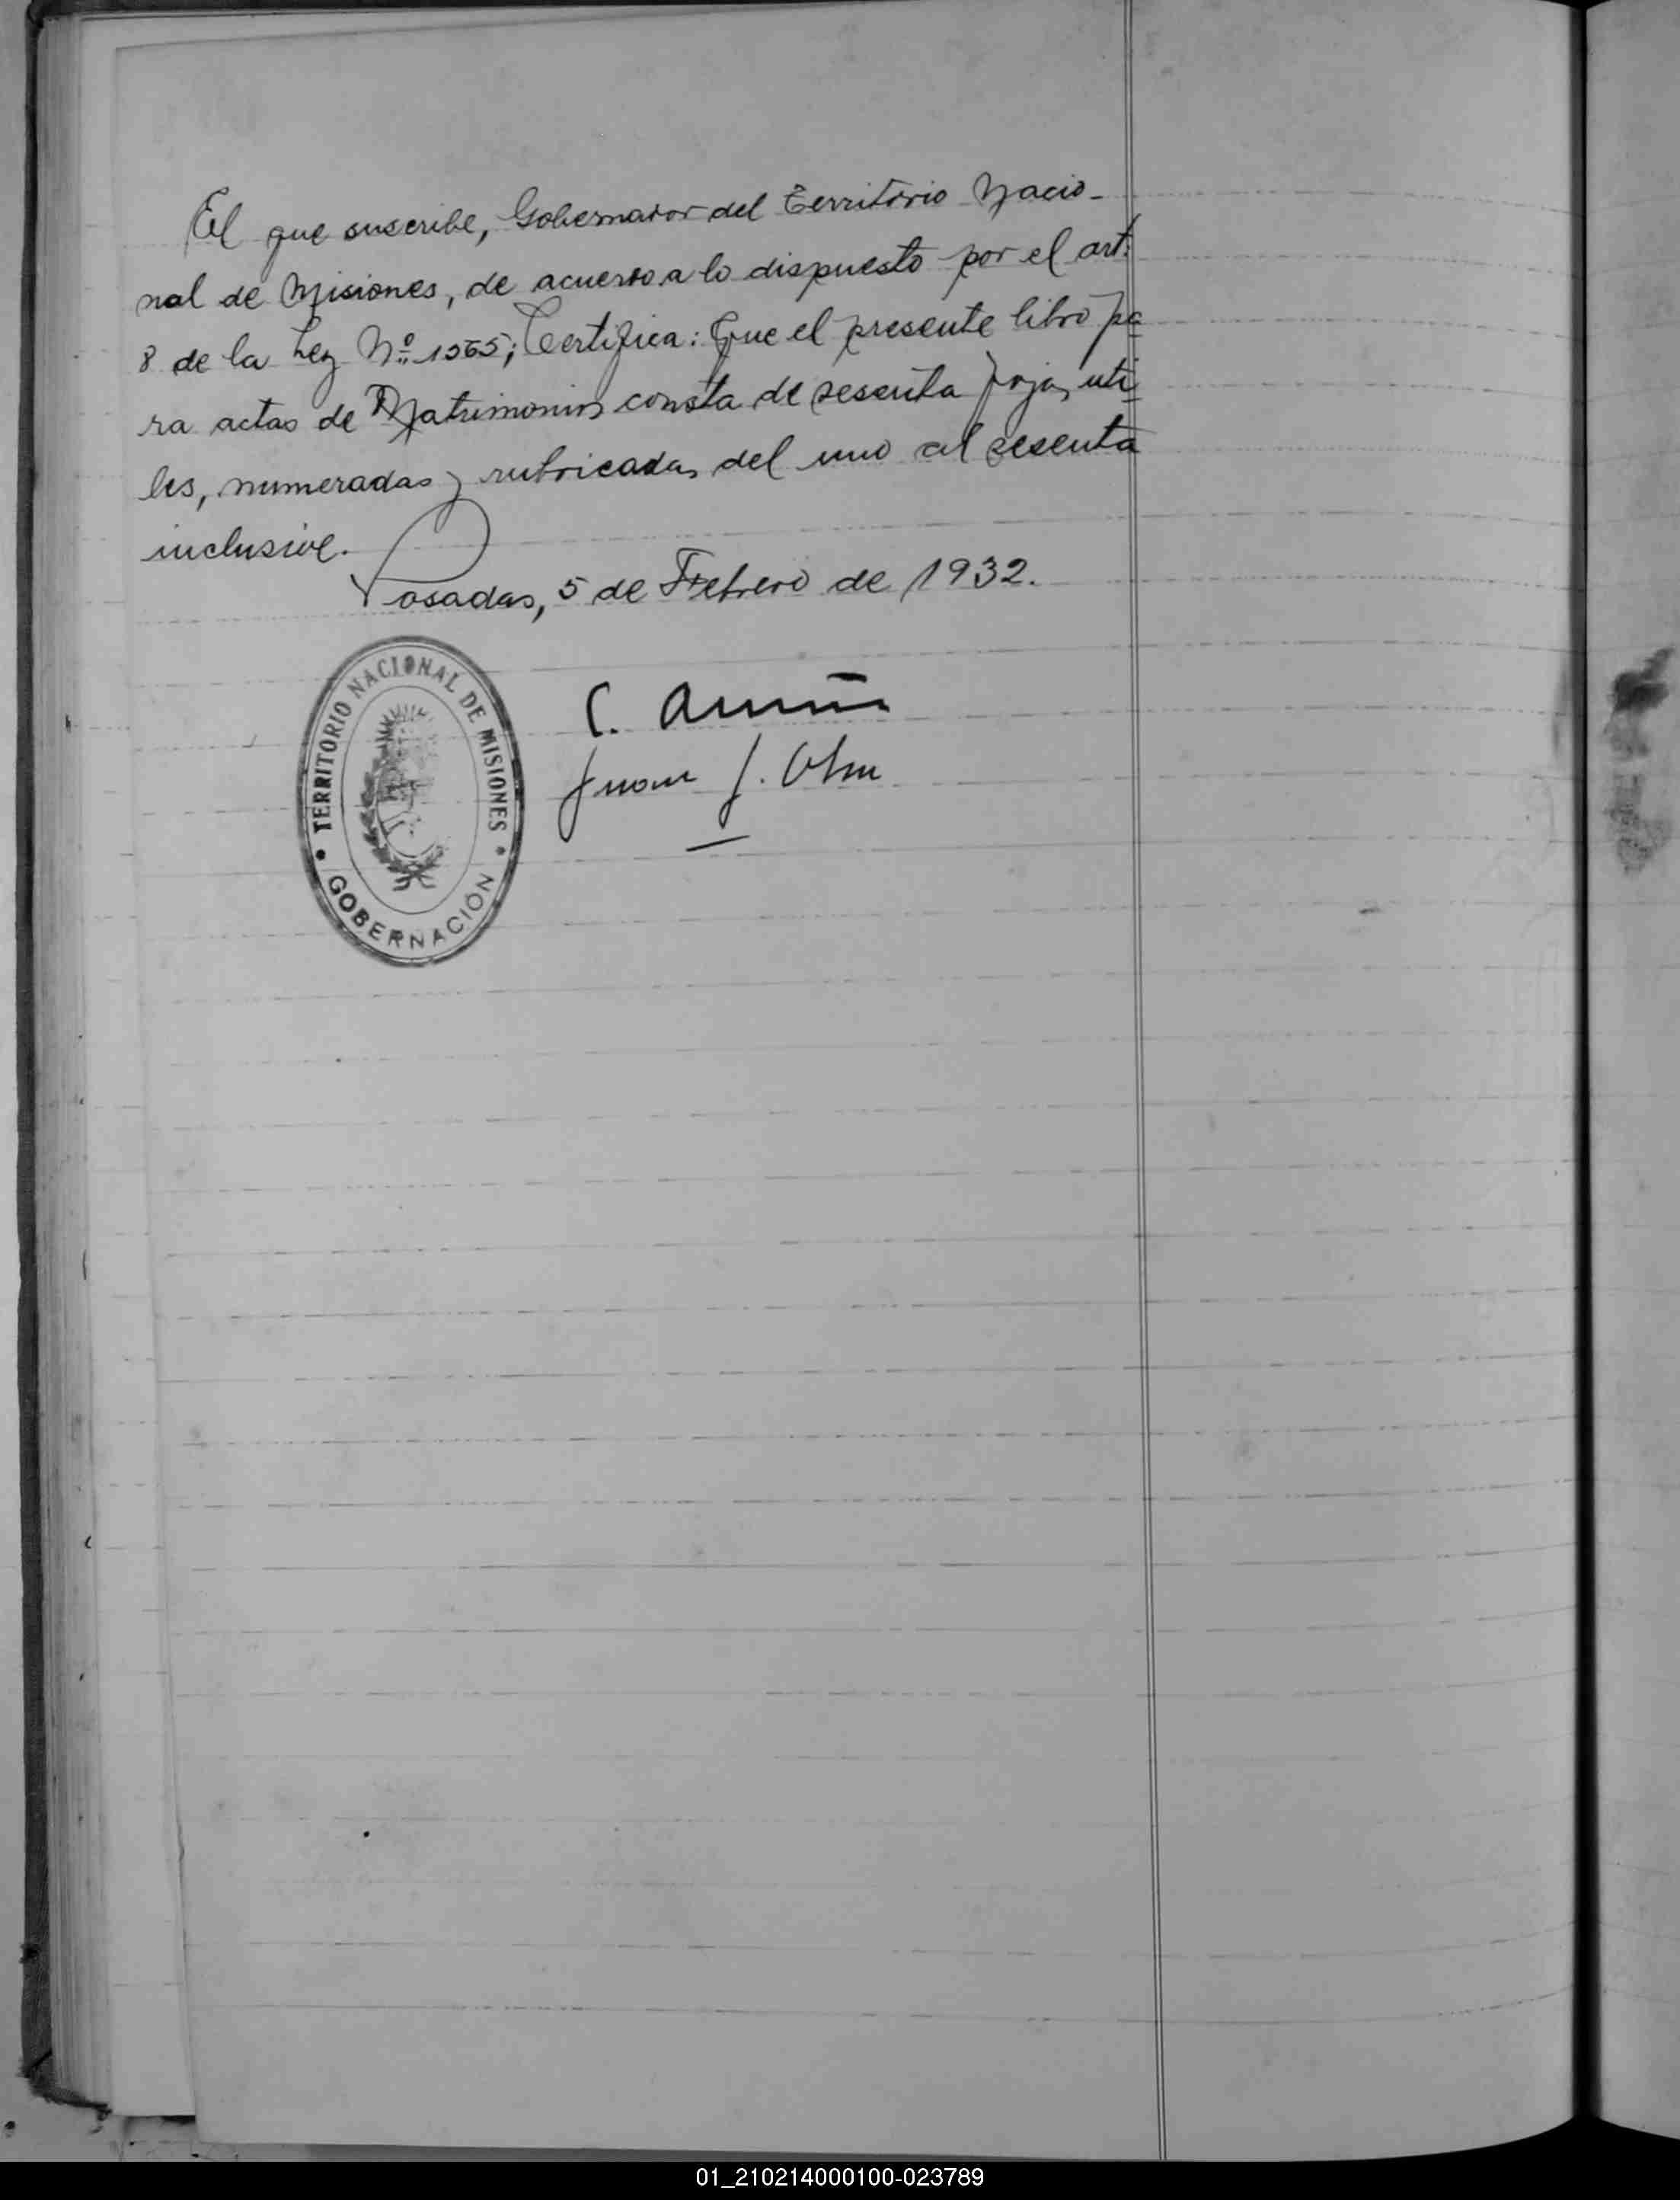 El que suscribe, Gobernador del Territorio Nacio-
nal de Misiones, de acuerdo a lo dispuesto por el art.
8 de la Ley Nº 1565; Certifica: Que el presente libro pa
ra actas de Matrimonios consta de sesenta fojas uti
les, numeradas y rubricadas del uno al sesenta
inclusive.
Posadas, 5 de Febrero de 1932.
TERRITORIO NACIONAL DE MISIONES
GOBERNACIÓN
C. Acuña
Juan J.
01_210214000100-023789